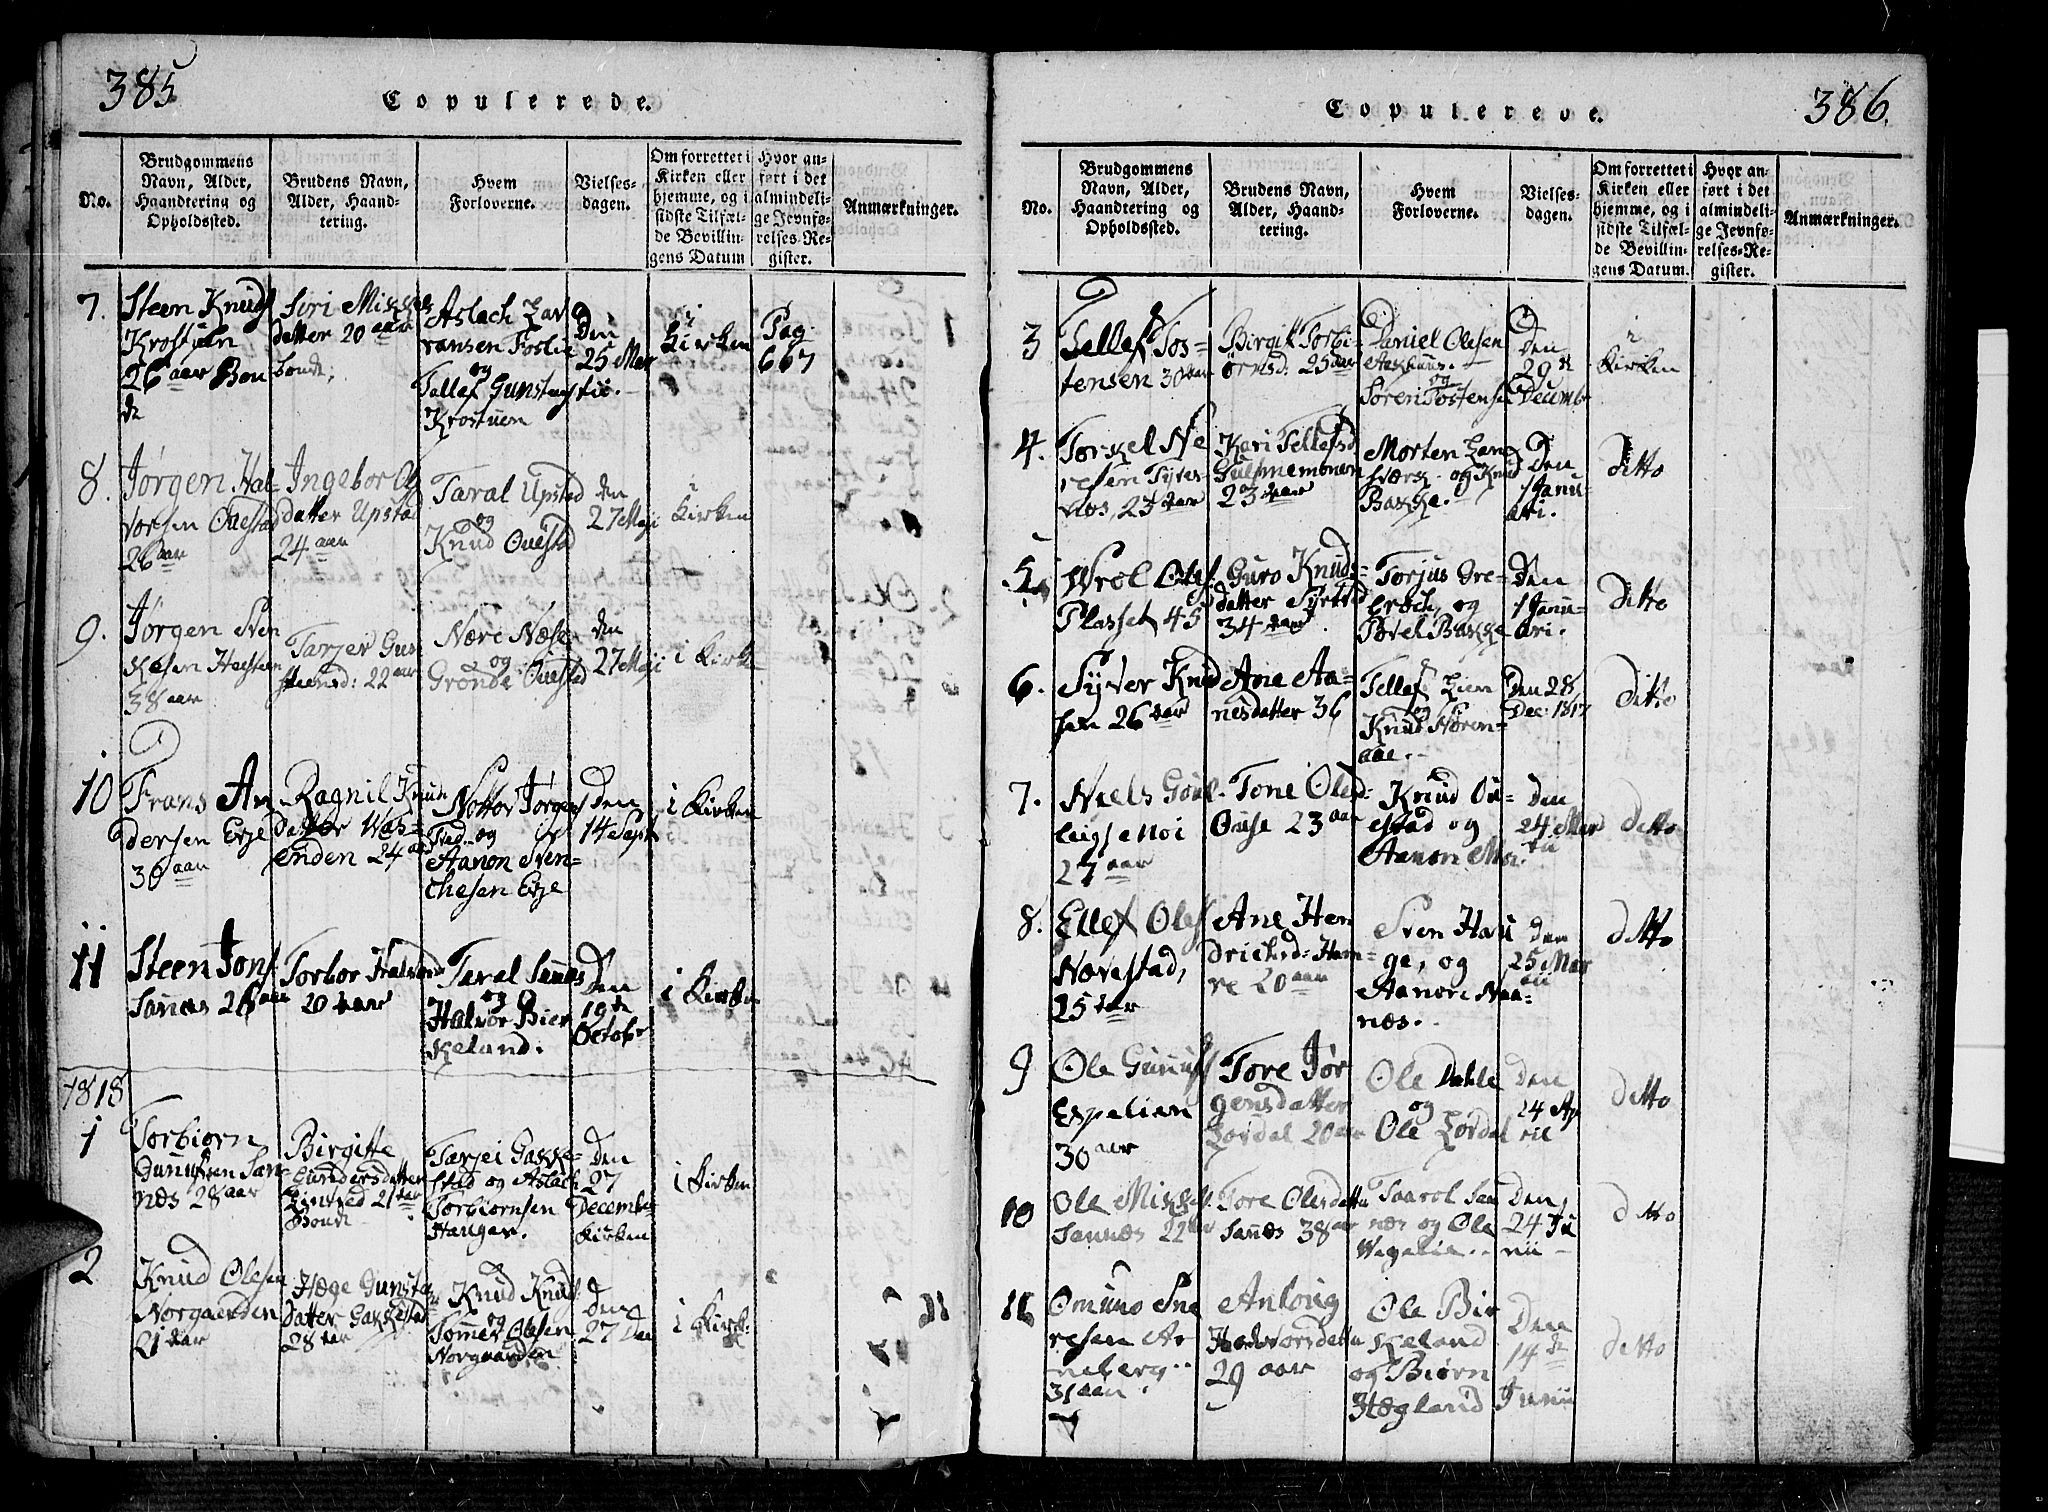 385
Copulerede.
No.
Brudgommens
Navn, Alder,
Haandtering og
Opholdssted.
Brudens Navn,
Alder, Haand-
tering.
Hvem
Forloverne.
Vielses-
dagen.
Om forrettet i
Kirken eller
hjemme, og i
sidste Tilfæl-
de Bevillin-
gens Datum
Hvor an-
ført i det
almindeli-
ge Jevnfø-
relses-Re-
gister.
Anmærkninger.
7.
Steen Knuds
Krostuen
26 aar Bon
de
Sori Mikkels
datter 20 aar
bonde,
Aslach Lar
ransen Foslie
og
Tallef Gunstensen
Krostuen
Den
25 Mar
tii.
i
Kirken
Pag.
667
8.
Jørgen Hal-
vorsen Ouestad
26 aar
Ingebor Ols
datter Upstad
24 aar
Taral Upstad
og
Knud Ouestad
den
27 Maji
i
Kirken
9.
Jørgen Sven
kesen
38 aar
Tarjer Gun
22 aar
Nære Næse
og
Grønde Ouestad
den
27 Maji
i Kirke
10
Frans An
dersen Evje
30 aar
Ragnil Knuds
datter Was
enden 24 aar
Nottor Jørgens
og
Aanon Sven-
chesen Evje
Den
14 Sept
i Kirken
11
Steen Jons
Sannæs 26 aar
Torbor Halvors
20 aar
Taral Sannæs
og
Halvor Bier
keland.
Den
19de
Octobr
i Kirken
1818
1
Torbiorn
Gunnufsen San-
næs 28 aar
Birgitte
Gundersdatter
21 aar
Bonde
Tarjei Gakke-
stad og Aslach
Torbiornsen
Haugen.
Den
27
December
Kirken
i Kirken
2
Knud Olesen
Norgaarden
21 aar
Hæge Gunsten
Datter Gakkestad
28 aar
Knud Knuds
og
Tommes Olesen
Norgaarden
den
27 Dec
i Kirk
386.
Copulerede.
No.
Brudgommens
Navn, Alder,
Haandtering og
Opholdssted.
Brudens Navn,
Alder, Haand-
tering.
Hvem
Forloverne.
Vielses-
dagen.
Om forrettet i
Kirken eller
hjemme, og i
sidste Tilfæl-
de Bevillin-
gens Datum.
Hvor an-
ført i det
almindeli-
ge Jevnfø-
relses-Re-
gister.
Anmærkninger.
3
Tellef Tos-
tensen 30 aar
Birgit Torbi-
ørnsd: 25 aar
Daniel Olesen
og
Søren Tostensen
Den
29de
Decembr
i
Kirken
4.
Torkel Ne
resen Tyves
23 aar
Kari Tellefsd
23 aar
Morten Lan
og Knud
Bakke.
Den
1 Janu-
ari.
ditto
5
Wrol Oles
Plasset 45
Guro Knuds-
datter Syrtved
34 aar
Torjus Gre-
og
Povel Bakke
Den
1 Janu-
ari.
ditto
6.
Syver Knud
sen 26 aar
Ane Aa-
nesdatter 36
Tellef Lien
og
Knud Støren-
aae.
Den 28
Dec: 1817
ditto
7.
Niels Goul
Moi
27 aar
Tone Olsd:
Ouse 23 aar
Knud Ou-
estad og
Aanon Moi.
Den
24 Mar
tii
ditto
8.
Ellef Oles
Navestad,
25 aar
Ane Hen
drichsd: Ham-
re 20 aar
Sven Hau
ge, og
Aanon Naa-
næs.
den
25 Mar
tii
ditto
9
Ole Gunnufs
Espelien
30 aar
Tore Jør
gensdatter
Lordal 20 aar
Ole Dahle
og
Ole Lordal
Den
24 Ap
ril
ditto
10
Ole Mikkels
Sannæs 22 aar
Tore Olesdatter
Sannæs 38 aar
Taarol San
næs og Ole
Wegelie.
Den
24 Ju
nii
ditto
11
Omund Sne
resen Ar
neberg
31 aar
Anloug
Hadvorsdatter
29 aar
Ole Bir
keland
og Biørn
Hægland
Den
14de
Junii
ditto